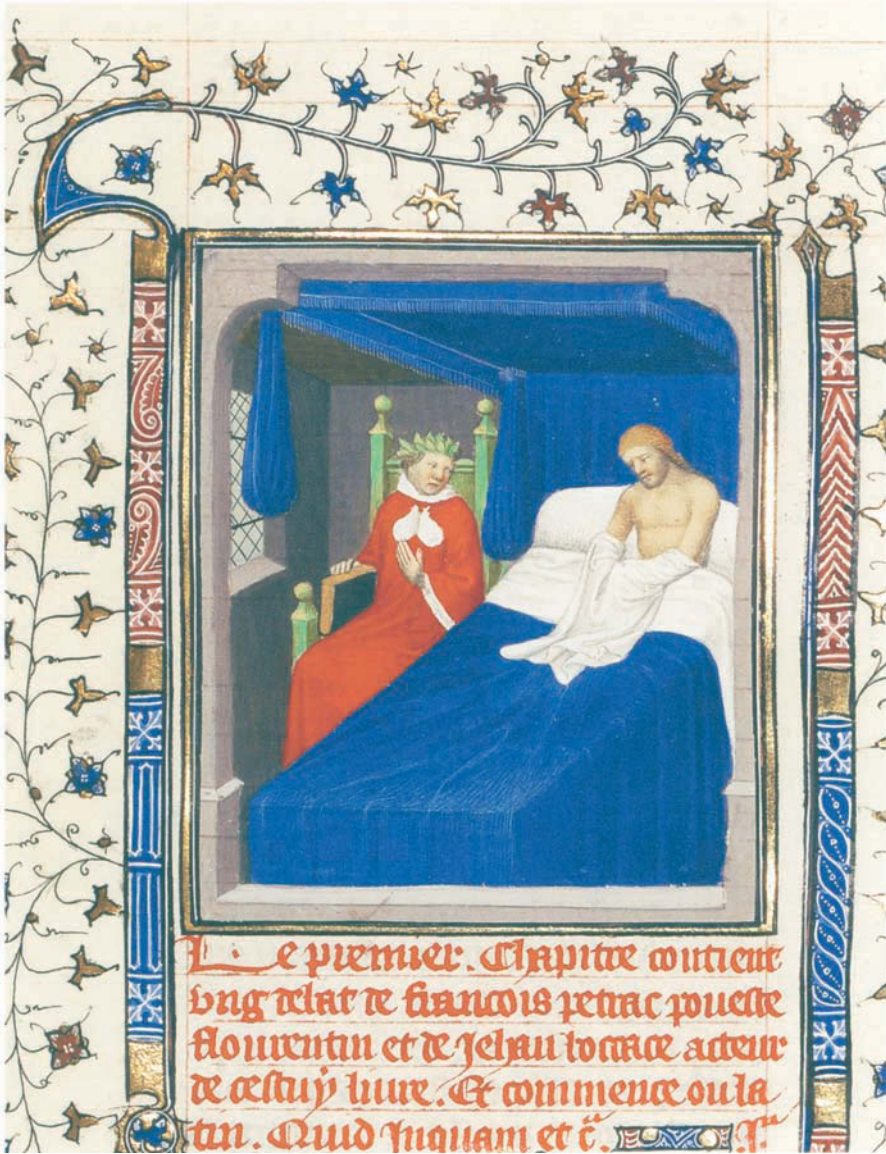 Le premier. Chapitre contient
vng delat de francois petrac pouette
flourentin et de Jehan bocace acteur
de cestuy liure. Et commence ou la
tin. Quid Inquam et c̃.